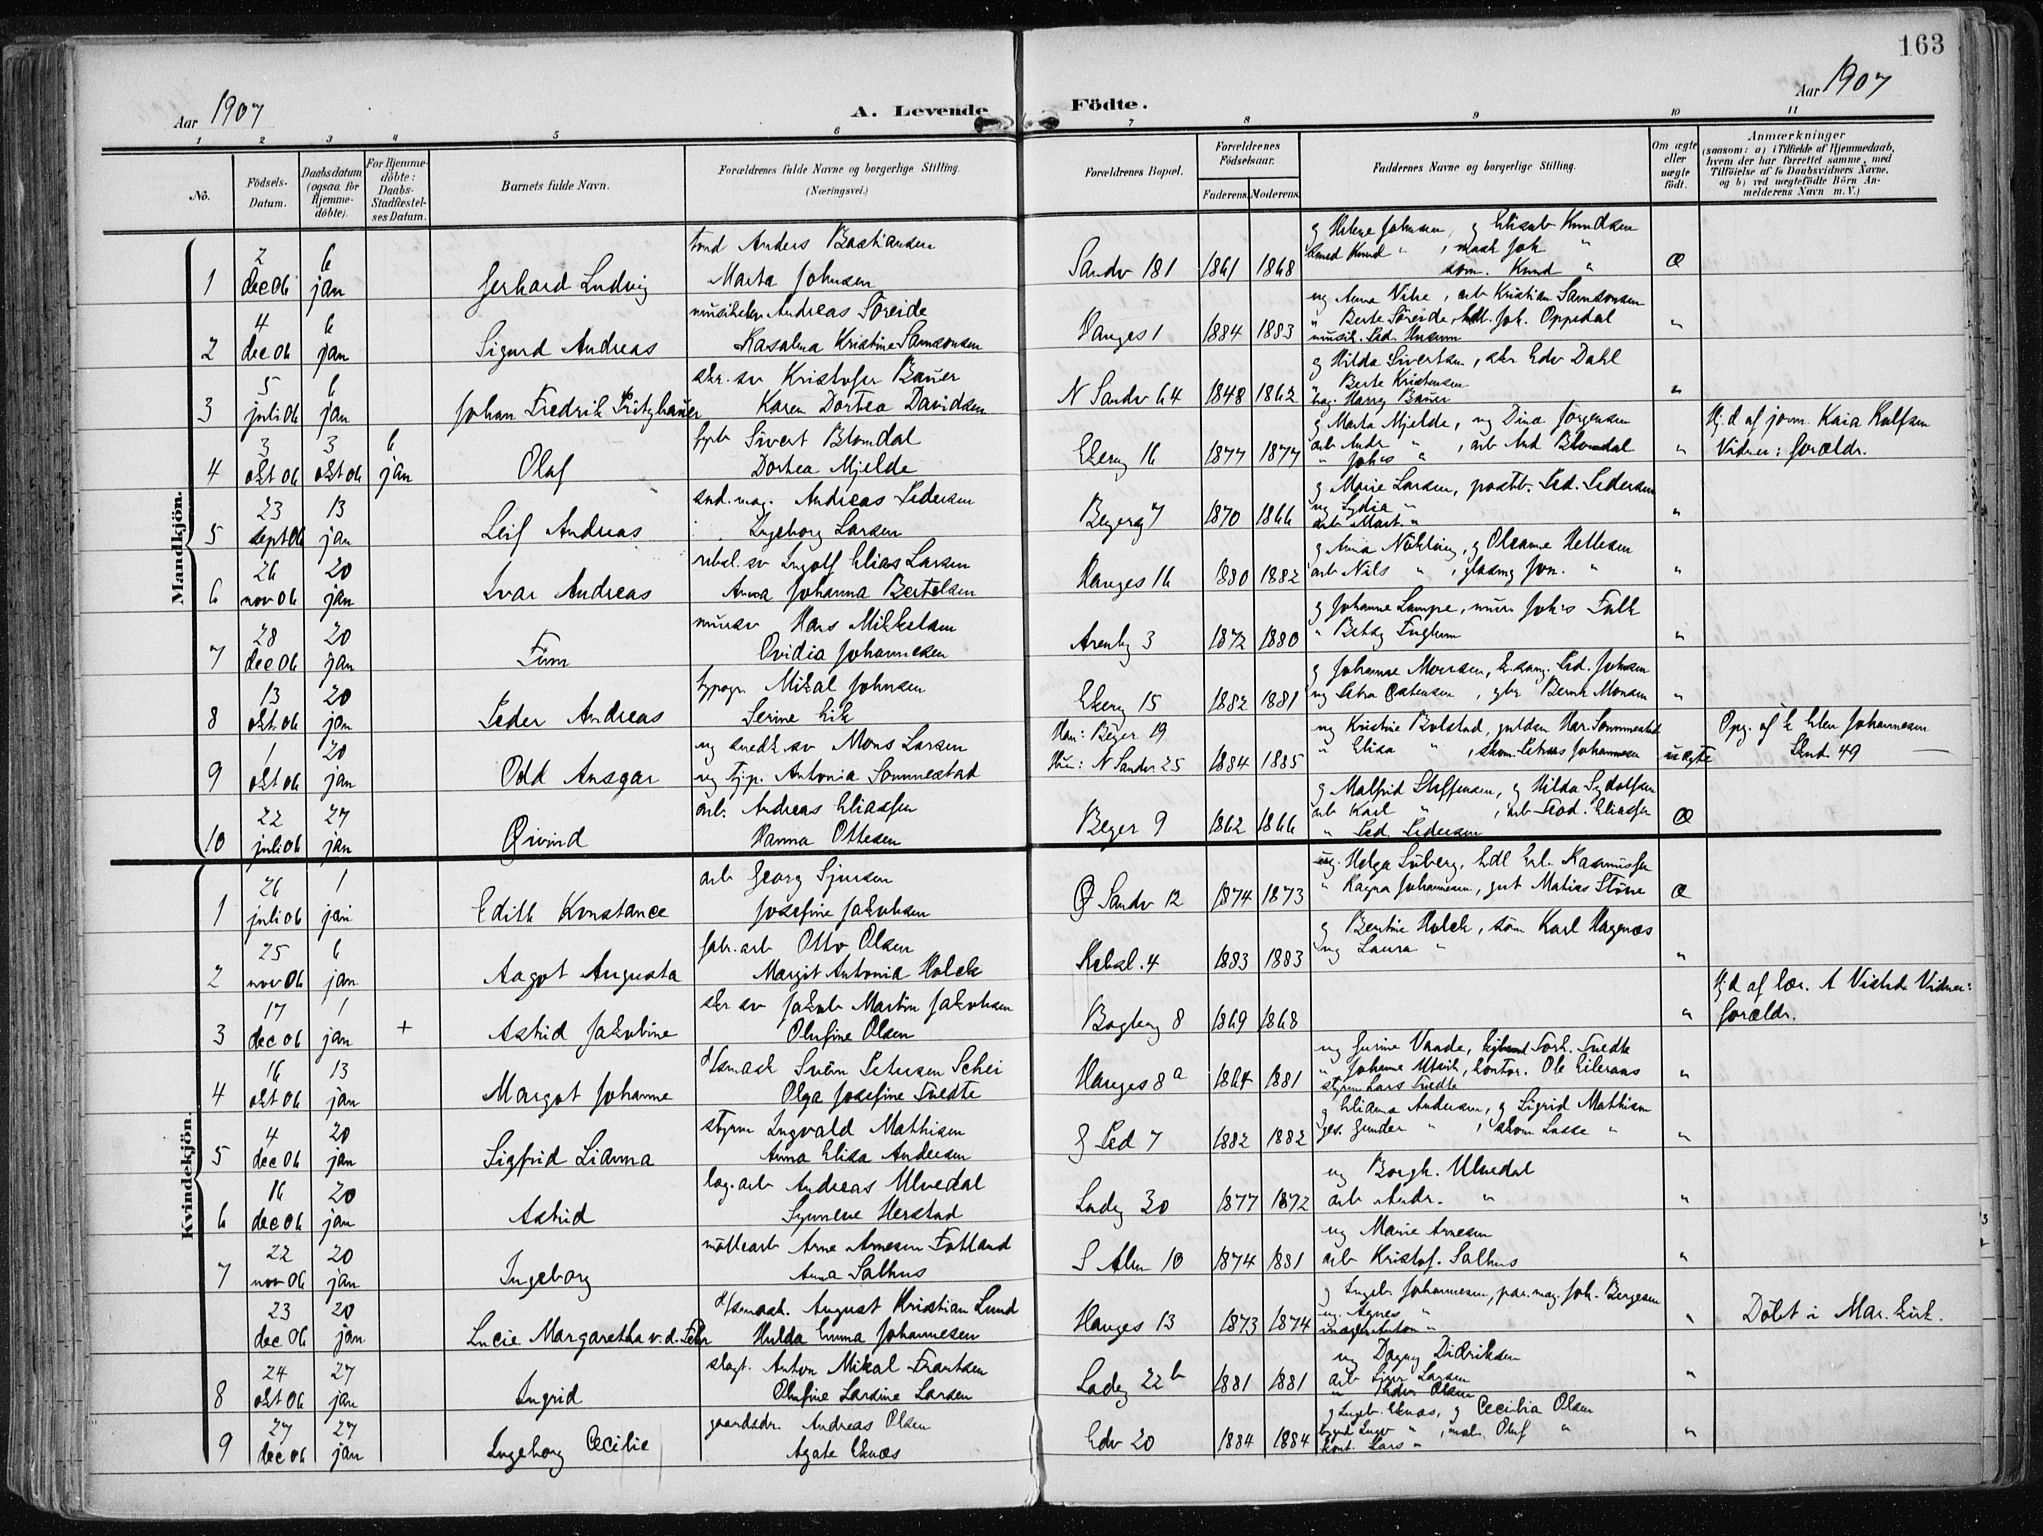 163
Aar 1907
A. Levende Födte.
Aar 1907
1 2 3 4 5 6 7 8 9 10 11
No.
Födsels-Datum.
Daabsdatum (ogsaa for Hjemme-döbte).
For Hjemme-döbte: Daabs-Stadfæstel-ses Datum.
Barnets fulde Navn.
Forældrenes fulde Navne og borgerlige Stilling. (Næringsvei.)
Forældrenes Bopæl.
Forældrenes Födselsaar.
Faderens. Moderens.
Faddernes Navne og borgerlige Stilling.
Om ægte eller uægte födt.
Anmærkninger
(saasom: a) i Tilfælde af Hjemmedaab, hvem der har forrettet samme, med Tilföielse af to Daabsvidners Navne, og b) ved uægtefödte Börn An-melderens Navn m. V.)
Mandkjön.
1 2 dec 06 6 jan Gerhard Ludvig Anders Bastiansen
Marta Johnsen Sandv 181 1861 1868 g Helene Johnsen, g Elisab Knudsen
smed Knud " , mask Joh "
Knud " Æ
2 4 dec 06 6 jan Sigurd Andreas Andreas Söreide
Rasalma Kristine Samsonsen Hauges 1 1884 1883 ug Anna Vike, arb Kristian Samsonsen
" Berte Söreide, Joh. Oppedal "
3 5 juli 06 6 jan Johan Fredrik Fritzhauer skr. sv Kristofer Bauer
Karen Dortea Davidsen N Sandv 64 1848 1862 g Hilda Sivertsen, skr Edv Dahl
" Berte Kristensen
Harry Bauer "
4 3 okt 06 3 okt 06 6 jan Olaf Sivert Blomdal
Dortea Mjelde Ekerg 16 1877 1877 g Marta Mjelde, ug Dina Jörgensen
arb Andr " , arb And Blomdal
" Johs " " Hj.d af jorm. Kaia Rolfsen
Vidner: foreldr.
5 23 sept 06 13 jan Leif Andreas snd. mag. Andreas Pedersen
Ingeborg Larsen Begerg 7 1870 1866 g Marie Larsen, postb. Ped. Pedersen
ug Lydia "
arb Mart. " "
6 26 nov 06 20 jan Ivar Andreas Ingolf Elias Larsen
Anna Johanna Bertelsen Hauges 16 1880 1882 g Anna Nökling, g Oleanne Hellesen
arb Nils " , Jon. " "
7 28 dec 06 20 jan Finn mursv Hans Mikkelsen
Ovidia Johannesen Arenbg 3 1872 1880 g Johanne Lampe, mur Johs Falk
" Betsy Fuglum "
8 13 okt 06 20 jan Peder Andreas typogr Mikal Johnsen
Serine Eik Ekerg 15 1882 1881 g Johannae Monsen, Ped. Johnsen
ug Petra Østensen, Bernt Monsen "
9 1 okt 06 20 jan Odd Ansgar ug snedk sv Mons Larsen
ug Tjp. Antonia Sommestad Han: Beger 19
Hun: N Sandv. 25 1884 1885 ug Kristine Bolstad, guldsm Har. Sommestad
" Elisa " , skom Petrus Johannesen uægte Opg. af Elen Johannesen
49
10 22 juli 06 27 jan Øivind arb. Andreas Eliassen
Hanna Ottesen Beger 9 1862 1866 g Malfrid Steffensen, g Hilda Sydolfsen
arb Karl " , arb Fred. Eliassen
" Ped Pedersen Æ
Kvindekjön.
1 26 juli 06 1 jan Edith Konstance arb Georg Sjursen
Josefine Jakobsen Ø Sandv 12 1874 1873 ug. Helga Soberg, Rasmussen
" Ragna Johannesen, Matias Störe Æ
2 25 nov 06 6 jan Aagot Augusta fabr. arb Otto Olsen
Margit Antonia Holck Rebsl. 4 1883 1883 g Bentine Holck, söm Karl Hagenæs
ug Laura " "
3 17 dec 06 1 jan + Astrid Jakobine skr sv Jakob Martin Jakobsen
Olufine Olsen Bogbeg 8 1869 1868 " Hj.d af lær. A Vidner:
foreldr.
4 16 okt 06 13 jan Margot Johanne Svein Petersen Schei
Olga Josefine Tvedte Hauges 8a 1864 1881 ug Gurine Vaade, Torh. Tvedte
" Johanne Utsik, kontor. Ole
styrm Lars Tvedte "
5 4 dec 06 20 jan Sigfrid Lianna styrm Ingvald Mathisen
Anna Elisa Andersen S Ped 7 1882 1882 g Eliama Andersen, g Sigrid Mathisen
Gunder " , skom Lasse " "
6 16 dec 06 20 jan Astrid log. arb Andreas Ulvedal
Synneve Herstad Ladeg 30 1877 1872 ug Borgh. Ulvedal
arb Andr. " "
7 22 nov 06 20 jan Ingeborg möllearb Arne Arnesen Fotland
Anna Salhus S Alm 10 1874 1881 ug Marie Arnesen
arb Kristof. Salhus "
8 23 dec 06 20 jan Lucie Margaretha v. d. Fehr August Kristian Lund
Hulda Emma Johannesen Hauges 13 1873 1874 g Ingeb. Johannesen, par. mag. Joh. Bergesen
ug. Agnes "
Anton " " Döbt i Mar. kirk.
8 24 okt 06 27 jan Ingrid slagt. Anton Mikal Frantsen
Olufine Larsine Larsen Ladeg 22b 1881 1881 ug Dagny Didriksen
arb Sjur Larsen
" Peder Olsen "
9 27 dec 06 27 jan Ingeborg Cecilie gaardsdr. Andreas Olsen
Agate Eknæs Edv 20 1884 1884 g Ingeb. Eknæs, g Cecilia Olsen
Ingv " , mal. Oluf "
kont. Lars " "